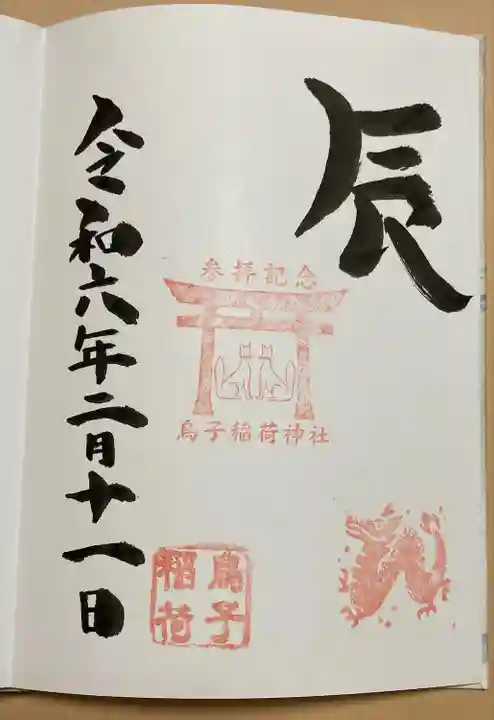 辰
参拝記念
鳥子稲荷神社
鳥子
稲荷
令和六年二月十一日